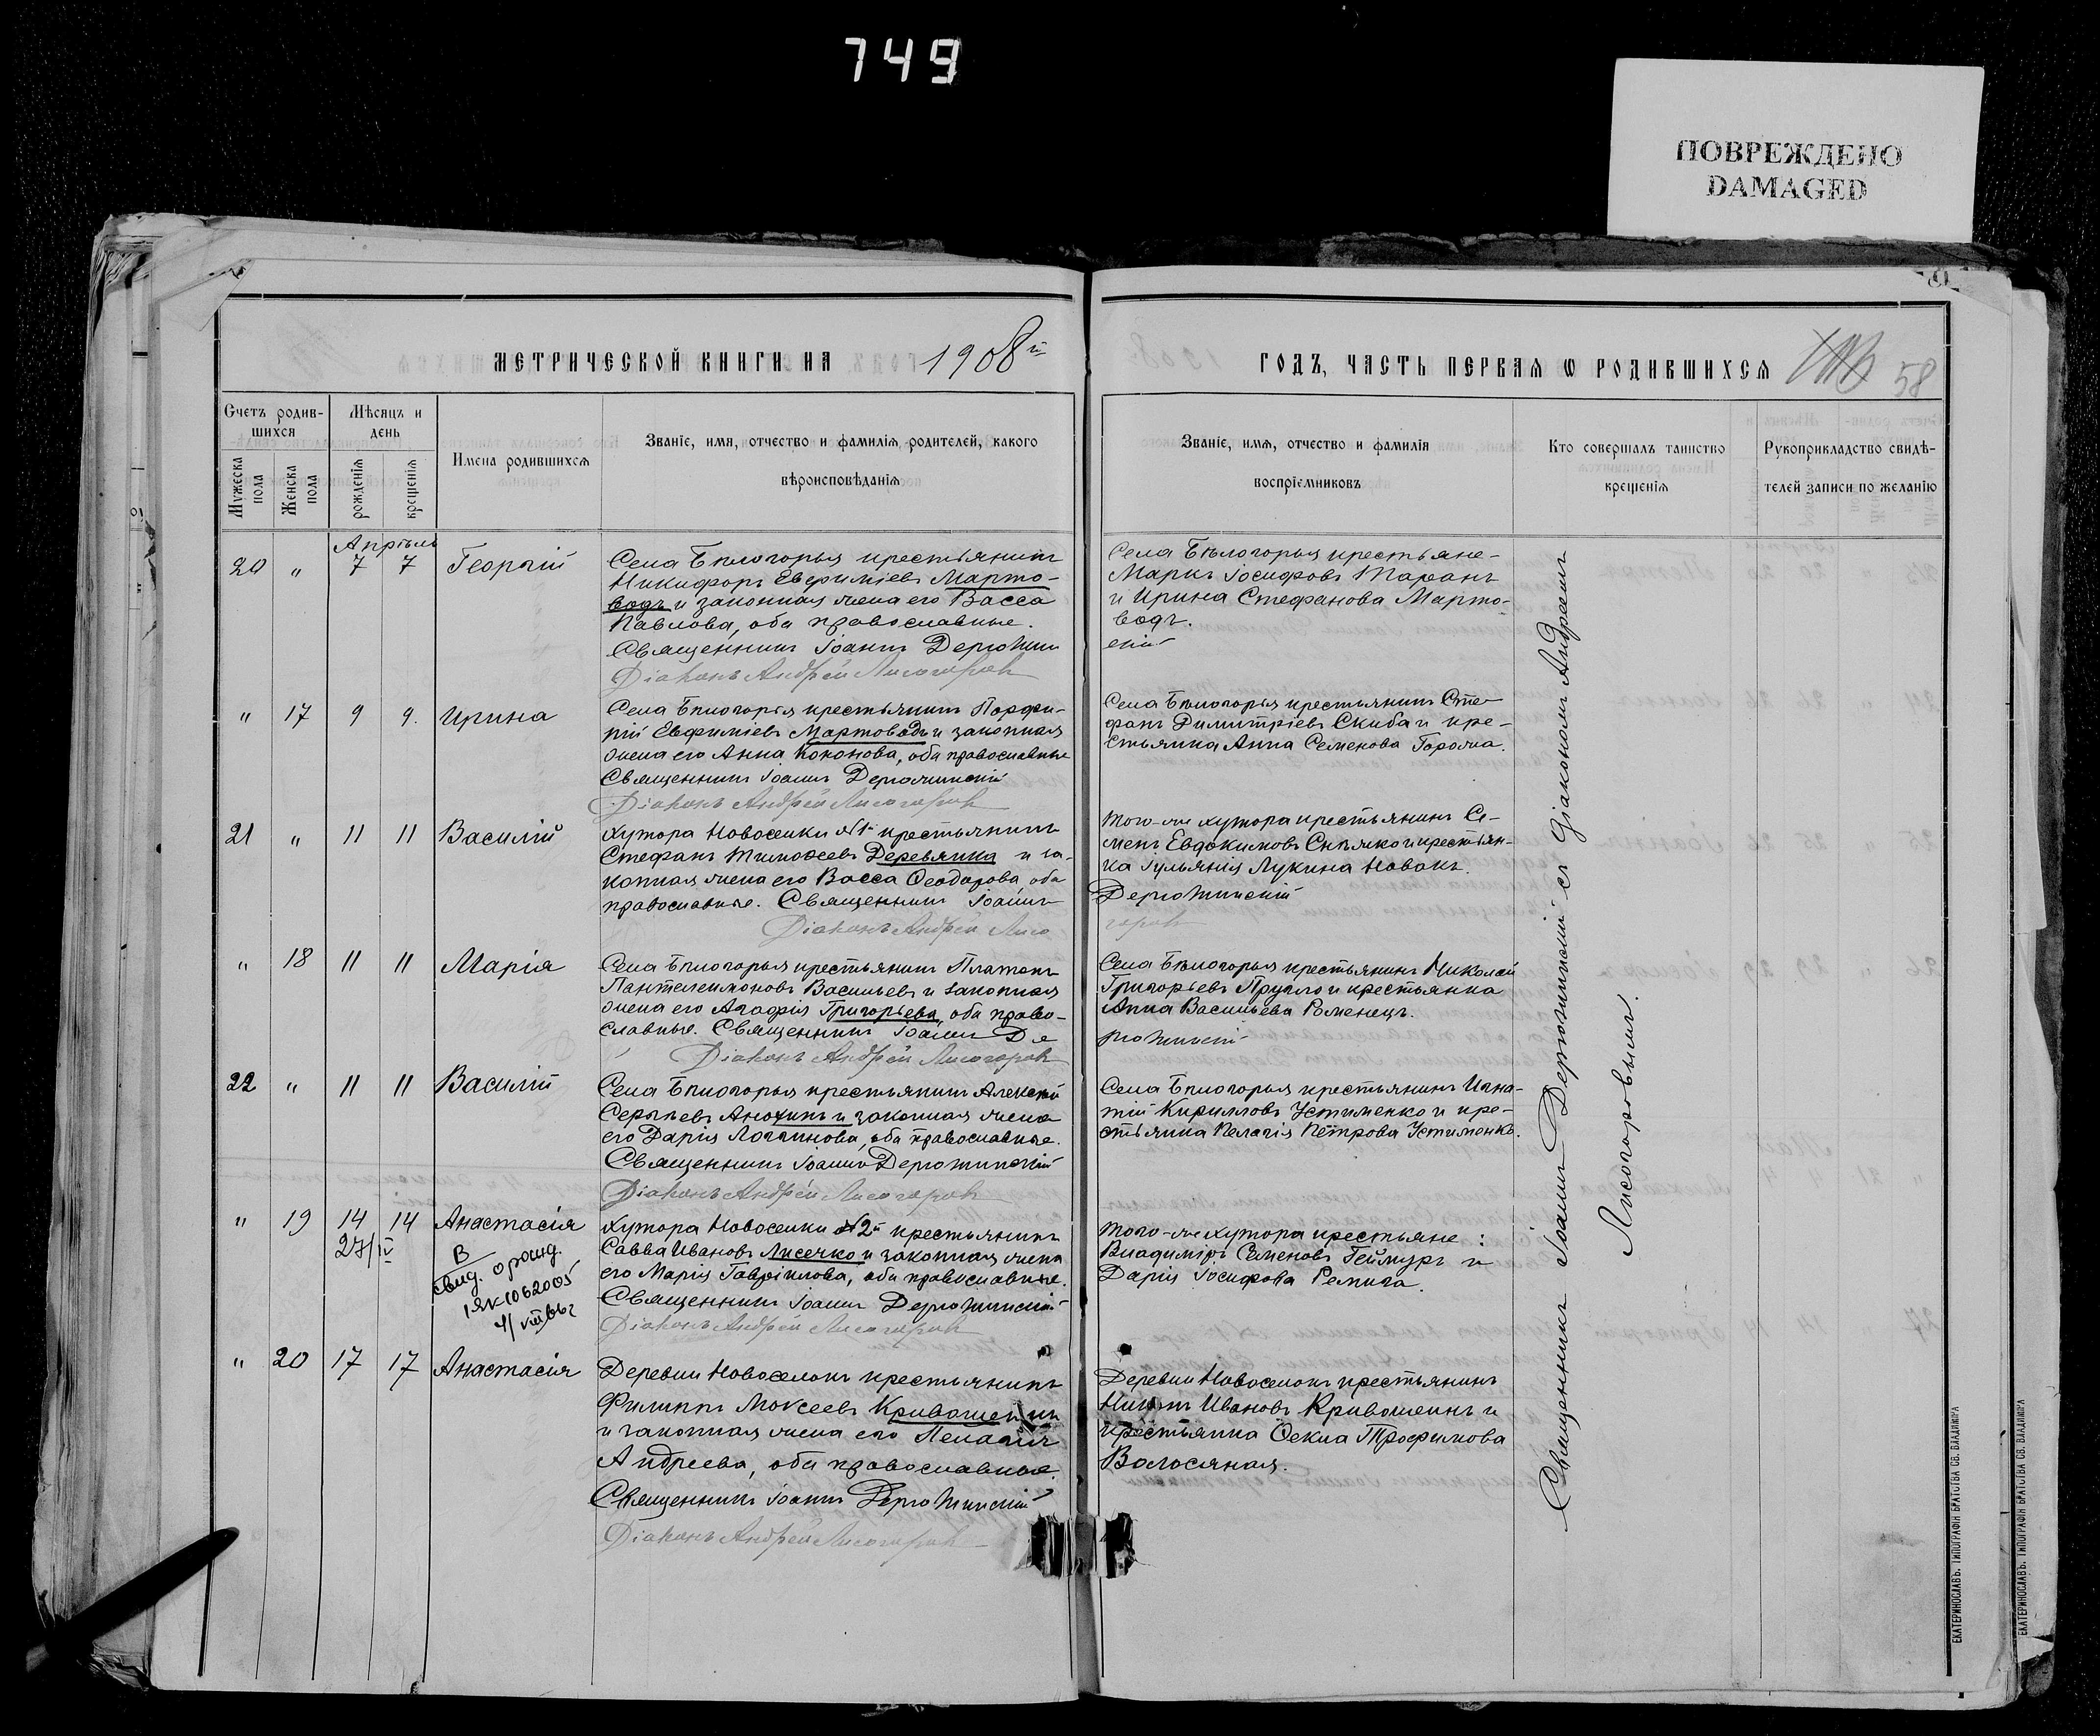 749
ПОВРЕЖДЕНО
DAMAGED
МЕТРИЧЕСКОЙ КНИГИ НА 1908й
ГОДЪ, ЧАСТЬ ПЕРВАЯ Ѡ РОДИВШИХСЯ
58
Счетъ родив-
шихся
Мѣсяцъ и
день
Мужеска
пола
Женска
пола
рожденія
крещенія
Имена родившихся
Званіе, имя, отчество и фамилія родителей, какого
вѣроисповѣданія
Званіе, имя, отчество и фамилія
воспріемниковъ
Кто совершалъ таинство
крещенія
Рукоприкладство свидѣ-
телей записи по желанію
Апрѣль
20 " 7 7 Георгій
Села Бѣлогорья крестьянинъ
Никифоръ Евфиміевъ Марто-
водъ и законная жена его Васса
Павлова, оба православные.
Священникъ Іоаннъ Дерюжин
Діаконъ Андрей Лисогоровъ
Села Бѣлогорья крестьяне-
Маркъ Іосифовъ Таранъ
и Ирина Стефанова Марто-
водъ.
скій
" 17 9 9. Ирина
Села Бѣлогорья крестьянинъ Порфи-
рій Евфиміевъ Мартоводъ и законная
жена его Анна Кононова, оба православные
Священникъ Іоаннъ Дерюжинскій
Діаконъ Андрей Лисогоровъ
Села Бѣлогорья крестьянинъ Сте-
фанъ Димитріевъ Скиба и кре-
стьянка Анна Семенова Горожа.
21 " 11 11 Василій
Хутора Новоселки №1й крестьянинъ
Стефанъ Тимоѳеевъ Деревянка и за-
конная жена его Васса Ѳеодорова, оба
православные. Священникъ Іоаннъ
Діаконъ Андрей Лисо
Того-же хутора крестьянинъ Се-
менъ Евдокимовъ Снѣжко и крестьян-
ка Іуліанія Лукина Новакъ.
Дерюжинскій
горовъ
" 18 11 11 Марія
Села Бѣлогорья крестьянинъ Платонъ
Пантелеимоновъ Васильевъ и законная
жена его Агафія Григорьева, оба право-
славные. Священникъ Іоаннъ Де
Діаконъ Андрей Лисогоровъ
Села Бѣлогорья крестьянинъ Николай
Григорьевъ Пругло и крестьянка
Анна Васильева Роменецъ.
рюжинскій
22 " 11 11 Василій
Села Бѣлогорья крестьянинъ Алексѣй
Сергѣевъ Анохинъ и законная жена
его Дарія Логгинова, оба православные.
Священникъ Іоаннъ Дерюжинскій
Діаконъ Андрей Лисогоровъ
Села Бѣлогорья крестьянинъ Игна-
тій Кирилловъ Устименко и кре-
стьянка Пелагія Петрова Устименко.
" 19 14 14 Анастасія
27/IV
В
свид. о рожд.
Хутора Новоселки №2й крестьянинъ
Савва Ивановъ Лисечко и законная жена
его Марія Гавріилова, оба православные.
Священникъ Іоаннъ Дерюжинскій
Діаконъ Андрей Лисогоровъ
Того-же хутора крестьяне:
Владиміръ Семеновъ Геймуръ и
Дарія Іосифова Ремига.
" 20 17 17 Анастасія
Деревни Новоселокъ крестьянинъ
Филиппъ Моѵсеевъ Кривошеинъ
и законная жена его Пелагія
Андреева, оба православные.
Священникъ Іоаннъ Дерюжинскій
Діаконъ Андрей Лисогоровъ
Деревни Новоселокъ крестьянинъ
Ивановъ Кривошеинъ и
крестьянка Ѳекла Трофимова
Волосяная.
Священникъ Іоаннъ Дерюжинскій съ діакономъ Андреемъ
Лисогоровымъ.
ЕКАТЕРИНОСЛАВЪ. ТИПОГРАФІЯ БРАТСТВА СВ. ВЛАДИМІРА
ЕКАТЕРИНОСЛАВЪ. ТИПОГРАФІЯ БРАТСТВА СВ. ВЛАДИМІРА